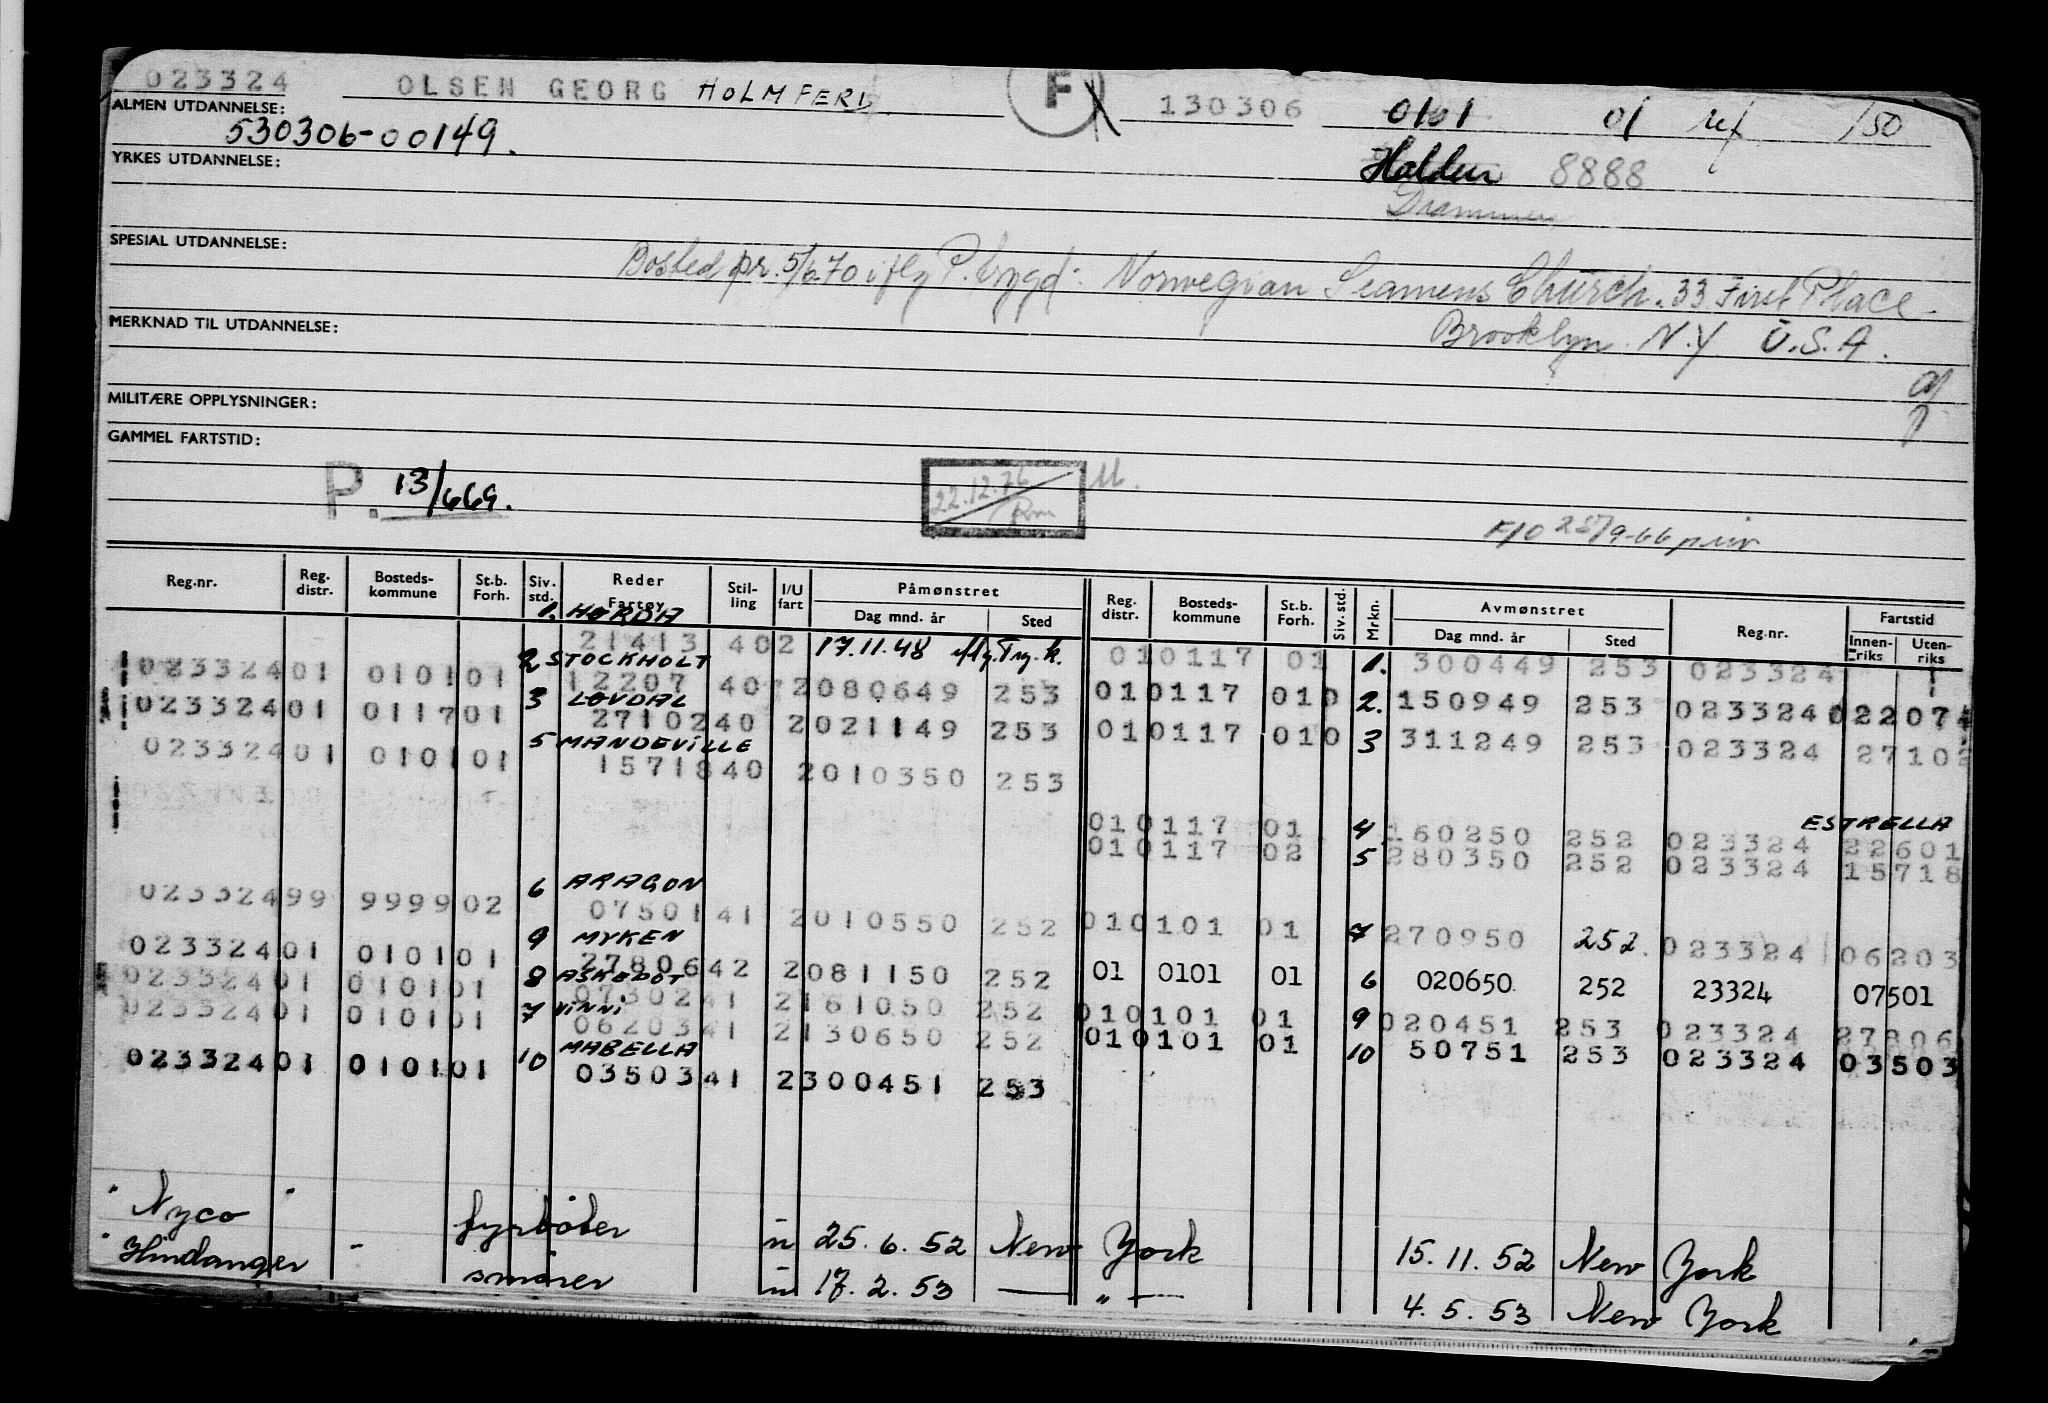 023324 OLSEN GEORG HOLMFERD. F 130306 0101 01 /50
ALMEN UTDANNELSE:
530306-00149.
YRKES UTDANNELSE:
Halden 8888
Drammen
SPESIAL UTDANNELSE:
Bosted pr. 5/6.70 iflg P. bygd: Norwegian Seamens Church. 33 First Place.
MERKNAD TIL UTDANNELSE:
Brooklyn. N.Y. U.S.A.
MILITÆRE OPPLYSNINGER:
GAMMEL FARTSTID:
P. 13/669.
22.12.76
Rm
Reg.nr. Reg. distr. Bosteds-kommune St.b. Forh. Siv. std. Reder Fartøy Stilling I/U fart Påmønstret Dag mnd. år Sted Reg. distr. Bosteds-kommune St.b. Forh. Siv. std. Mrkn. Avmønstret Dag mnd. år Sted Reg.nr. Fartstid Innenriks Utenriks
1. HØRDA
21413 402 17.11.48 010117 01 1. 300449 253 023324
02332401 010101 2 STOCKHOLT
12207 40 2080649 253 010117 010 2. 150949 253 023324 022074
02332401 011701 3 LØVDAL
2710240 2021149 253 010117 010 3 311249 253 023324 27102
02332401 010101 5 MANDEVILLE
1571840 2010350 253
ESTRELLA
010117 01 4 160250 252 023324 22601
010117 02 5 280350 252 023324 15718
02332499 999902 6 ARAGON
0750141 2010550 252 010101 01 7 270950 252. 023324 06203
02332401 010101 9 MYKEN
2780642 2081150 252 01 0101 01 6 020650 252 23324 07501
02332401 010101 8 ASKEPOT
0730241 2161050 252 010101 01 9 020451 253 023324 27806
02332401 010101 7 VINNI
0620341 2130650 252 010101 01 10 50751 253 023324 03503
02332401 010101 10 MABELLA
0350341 2300451 253
" Nyco " fyrbøter u 25.6.52 New York 15.11.52 New York
" Hindanger - smører u 17.2.53 — " — 4.5.53 New York